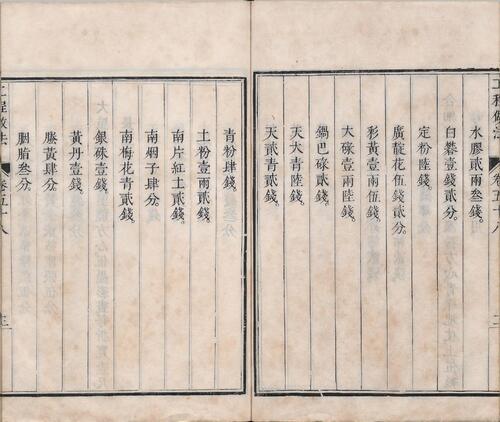 水膠貳兩叁錢。
白礬壹錢貳分。
定粉陸錢。
廣靛花伍錢貳分。
彩黃壹兩伍錢。
大碌壹兩陸錢。
鍋巴碌貳錢。
天大青陸錢。
天貳青貳錢。
青粉肆錢。
土粉壹兩貳錢。
南片紅土貳錢。
南烟子肆分。
南梅花青貳錢。
銀硃壹錢。
黃丹壹錢。
籐黃肆分。
胭脂叁分。
工程做法
卷五十八